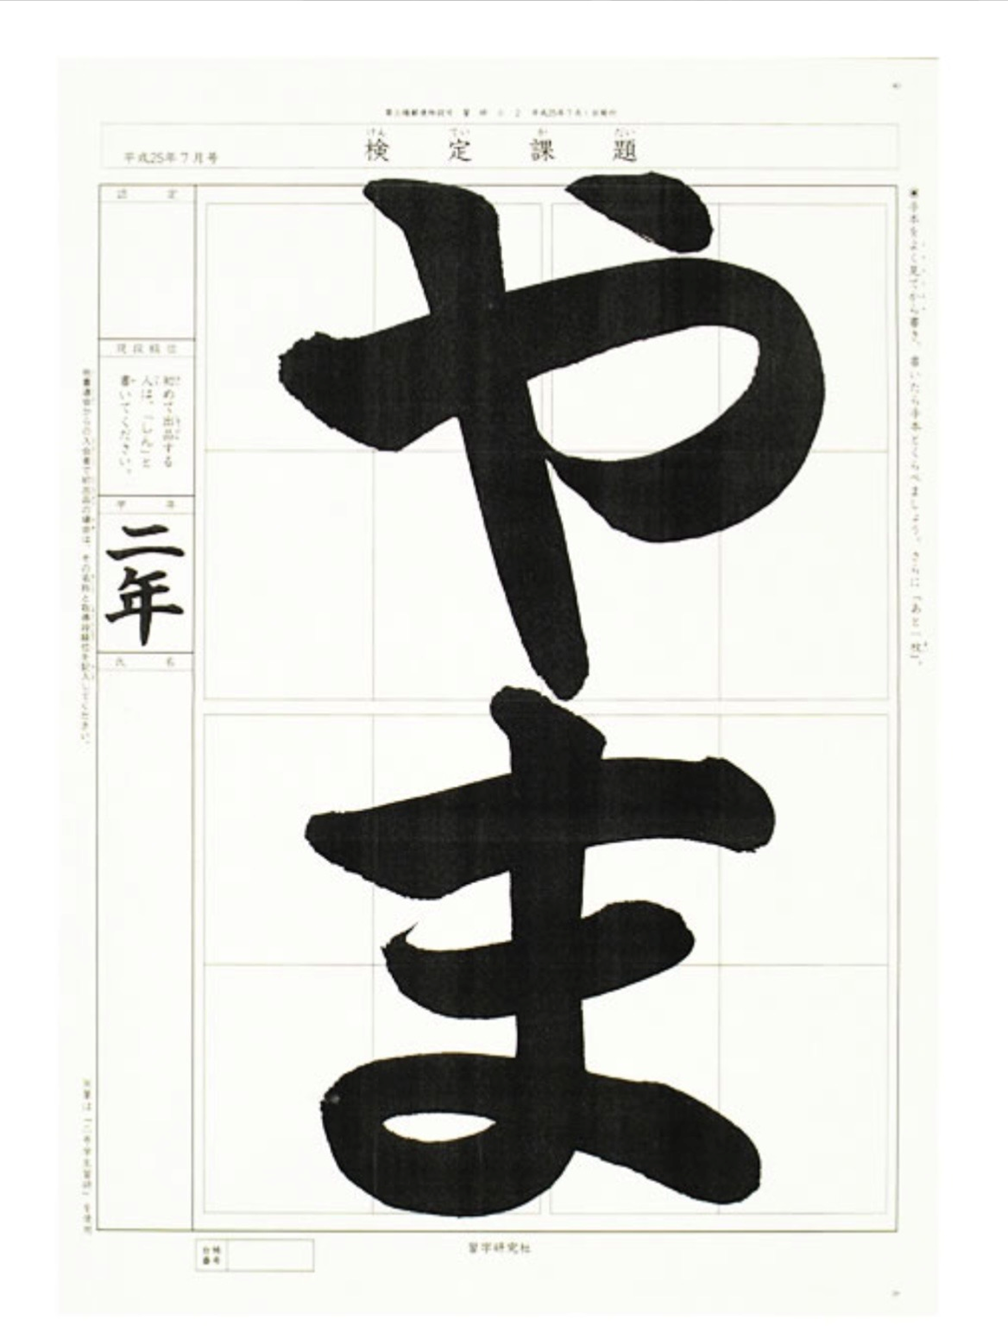 検定課題
けん てい か だい
平成25年7月号
※手本をよく見てから書き、書いたら手本とくらべましょう。さらに「あと一枚」。
やま
認定
現段級位
初めて出品する
人は、「しん」と
書いてください。
学年
二年
氏名
台帳
番号
習字研究社